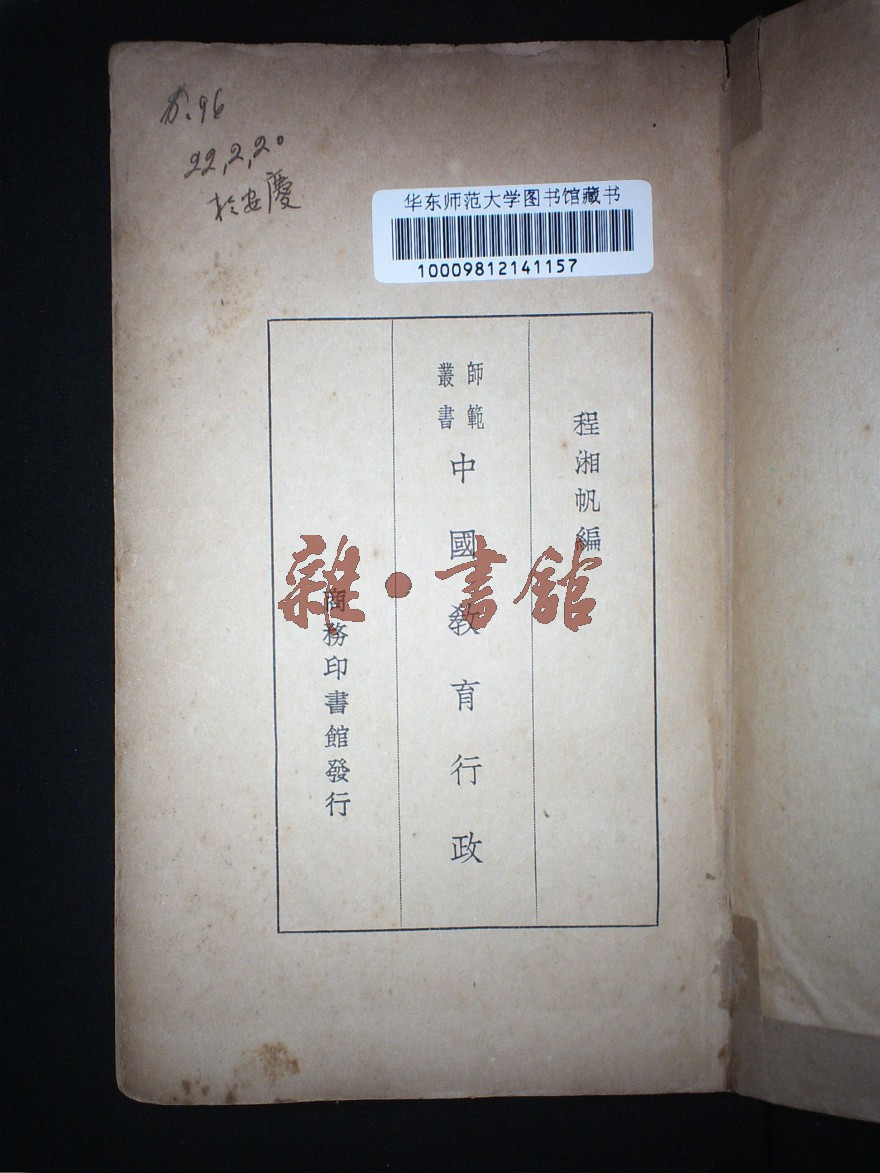 22,2,20
於安慶
华东师范大学图书馆藏书
10009812141157
程湘帆編
師範
叢書
中國敎育行政
商務印書館發行
雜·書館